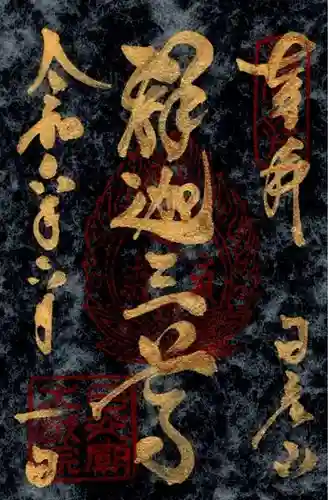 奉拝
日光山
釈迦三尊
令和六年六月一日